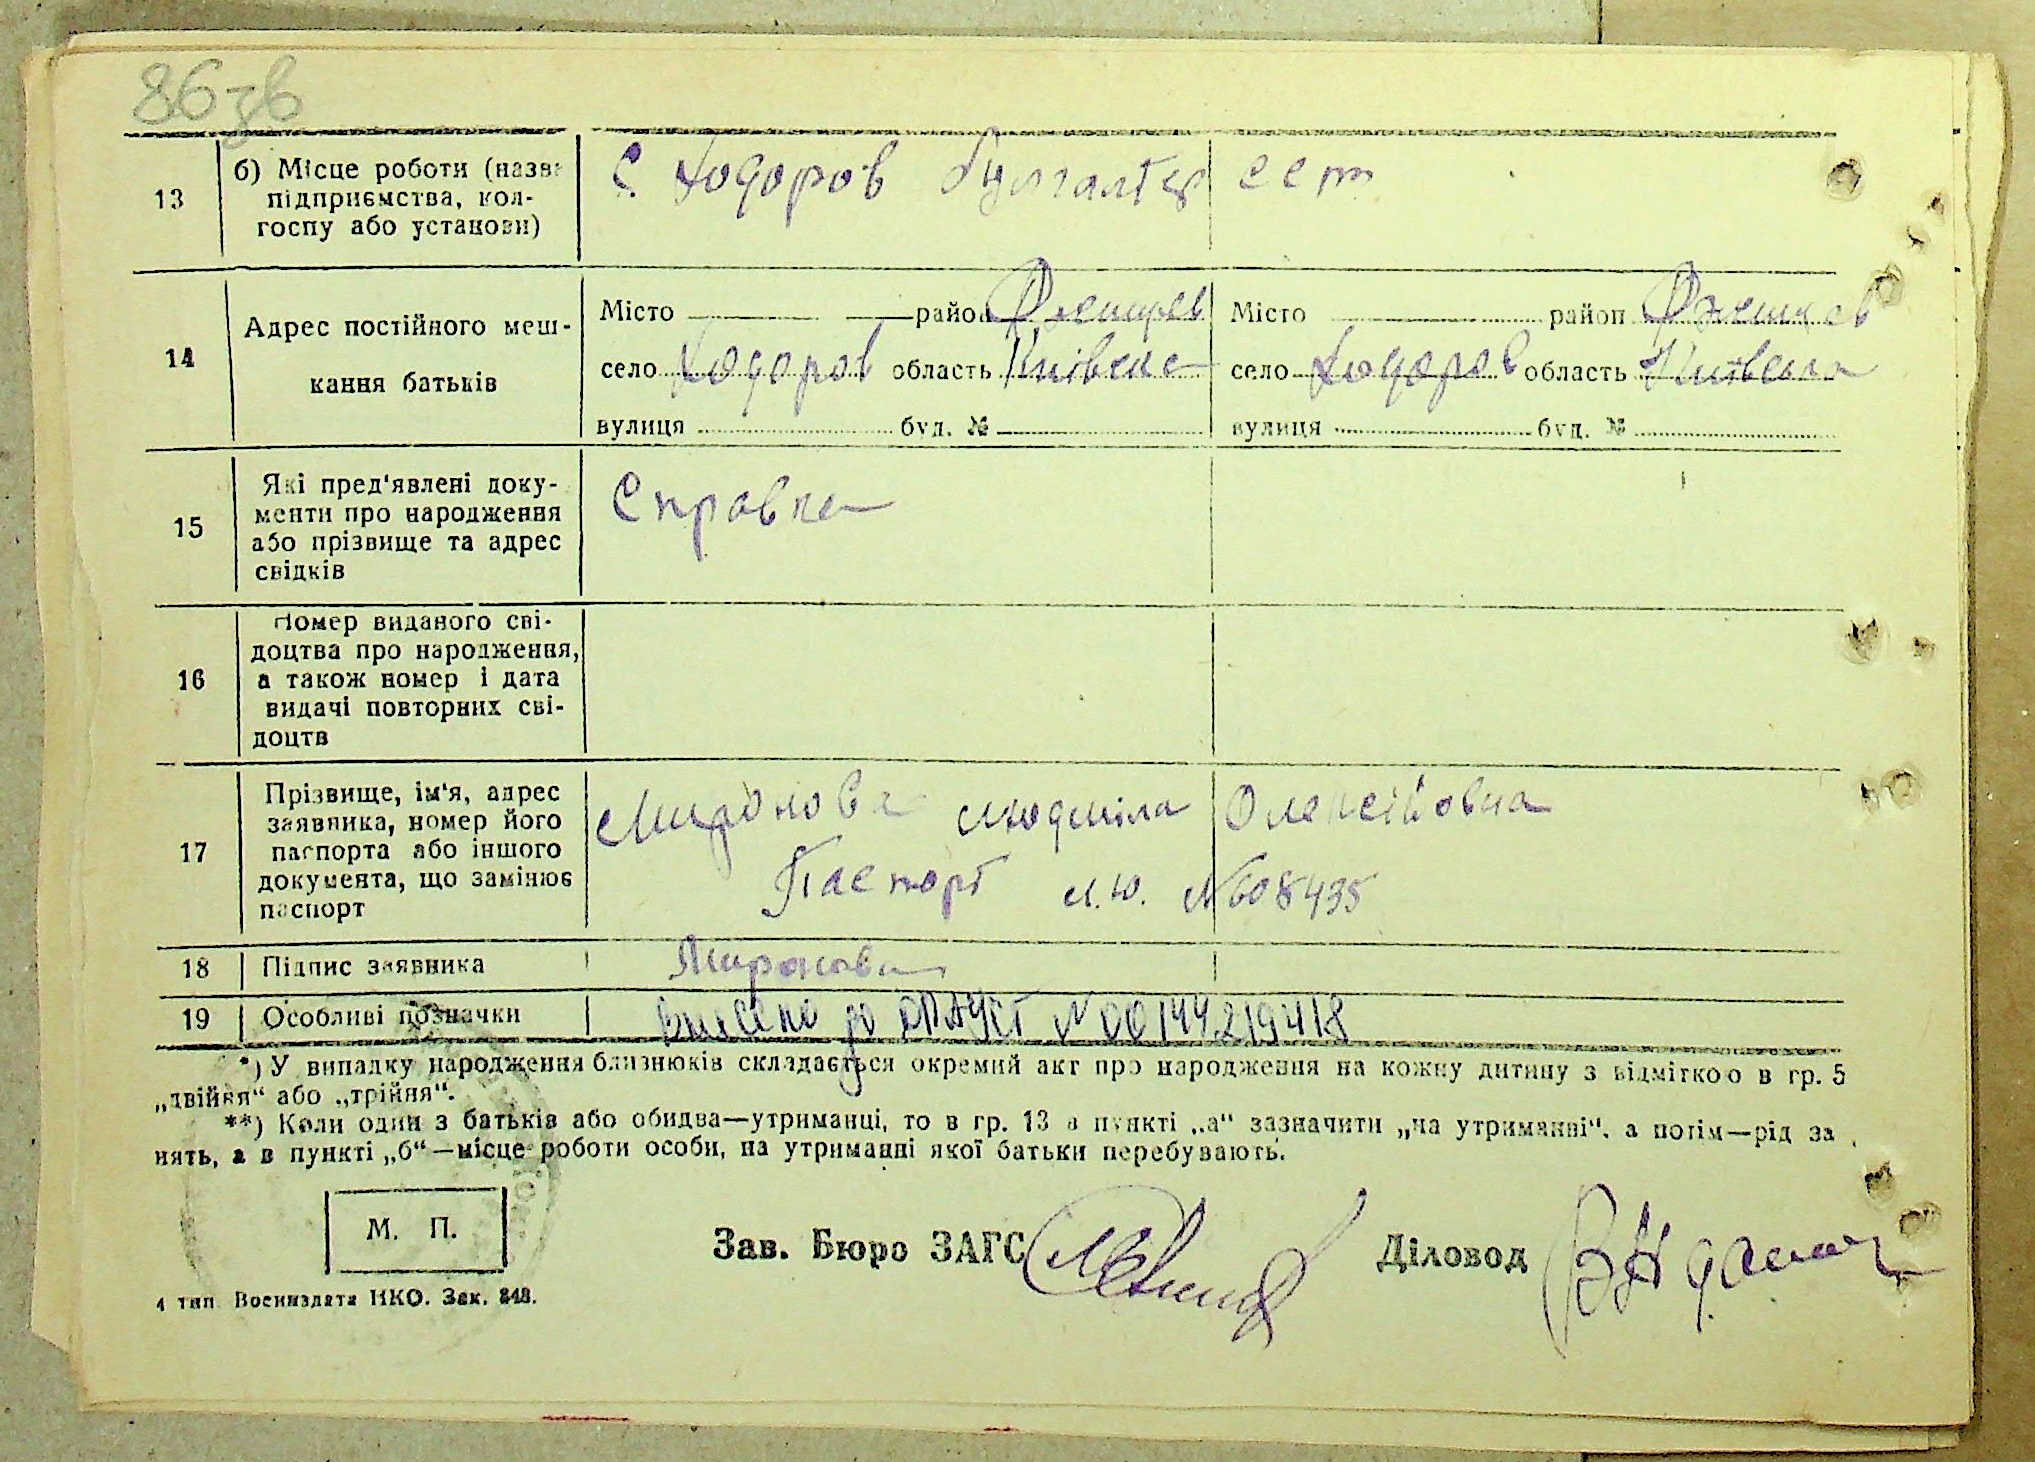 86зв
13
б) Місце роботи (назва
підприємства, кол-
госпу або установи)
С. Ходоров бухгалтер
14
Адрес постійного меш-
кання батьків
Місто район Ржищев
село Ходоров область Київська
вулиця буд. №
Місто район Ржищев
село Ходоров область Київська
вулиця буд. №
15
Які пред'явлені доку-
менти про народження
або прізвище та адрес
свідків
Справка
16
Номер виданого сві-
доцтва про народження,
а також номер і дата
видачі повторних сві-
доцтв
17
Прізвище, ім'я, адрес
заявника, номер його
паспорта або іншого
документа, що замінює
паспорт
Миронова Людміла Олексійовна
Паспорт Л.Ю. №608435
18 Підпис заявника Миронова
19 Особливі позначки внесено до ДРАЦСГ N 00144219418
*) У випадку народження близнюків складається окремий акт про народження на кожну дитину з відміткою в гр. 5
„двійня“ або „трійня“.
**) Коли один з батьків або обидва—утриманці, то в гр. 13 в пункті „а“ зазначити „на утриманні“, а потім—рід за
нять, а в пункті „б“—місце роботи особи, на утриманні якої батьки перебувають.
М. П.
Зав. Бюро ЗАГС
Діловод
4 тип. Воениздата НКО. Зак. 848.